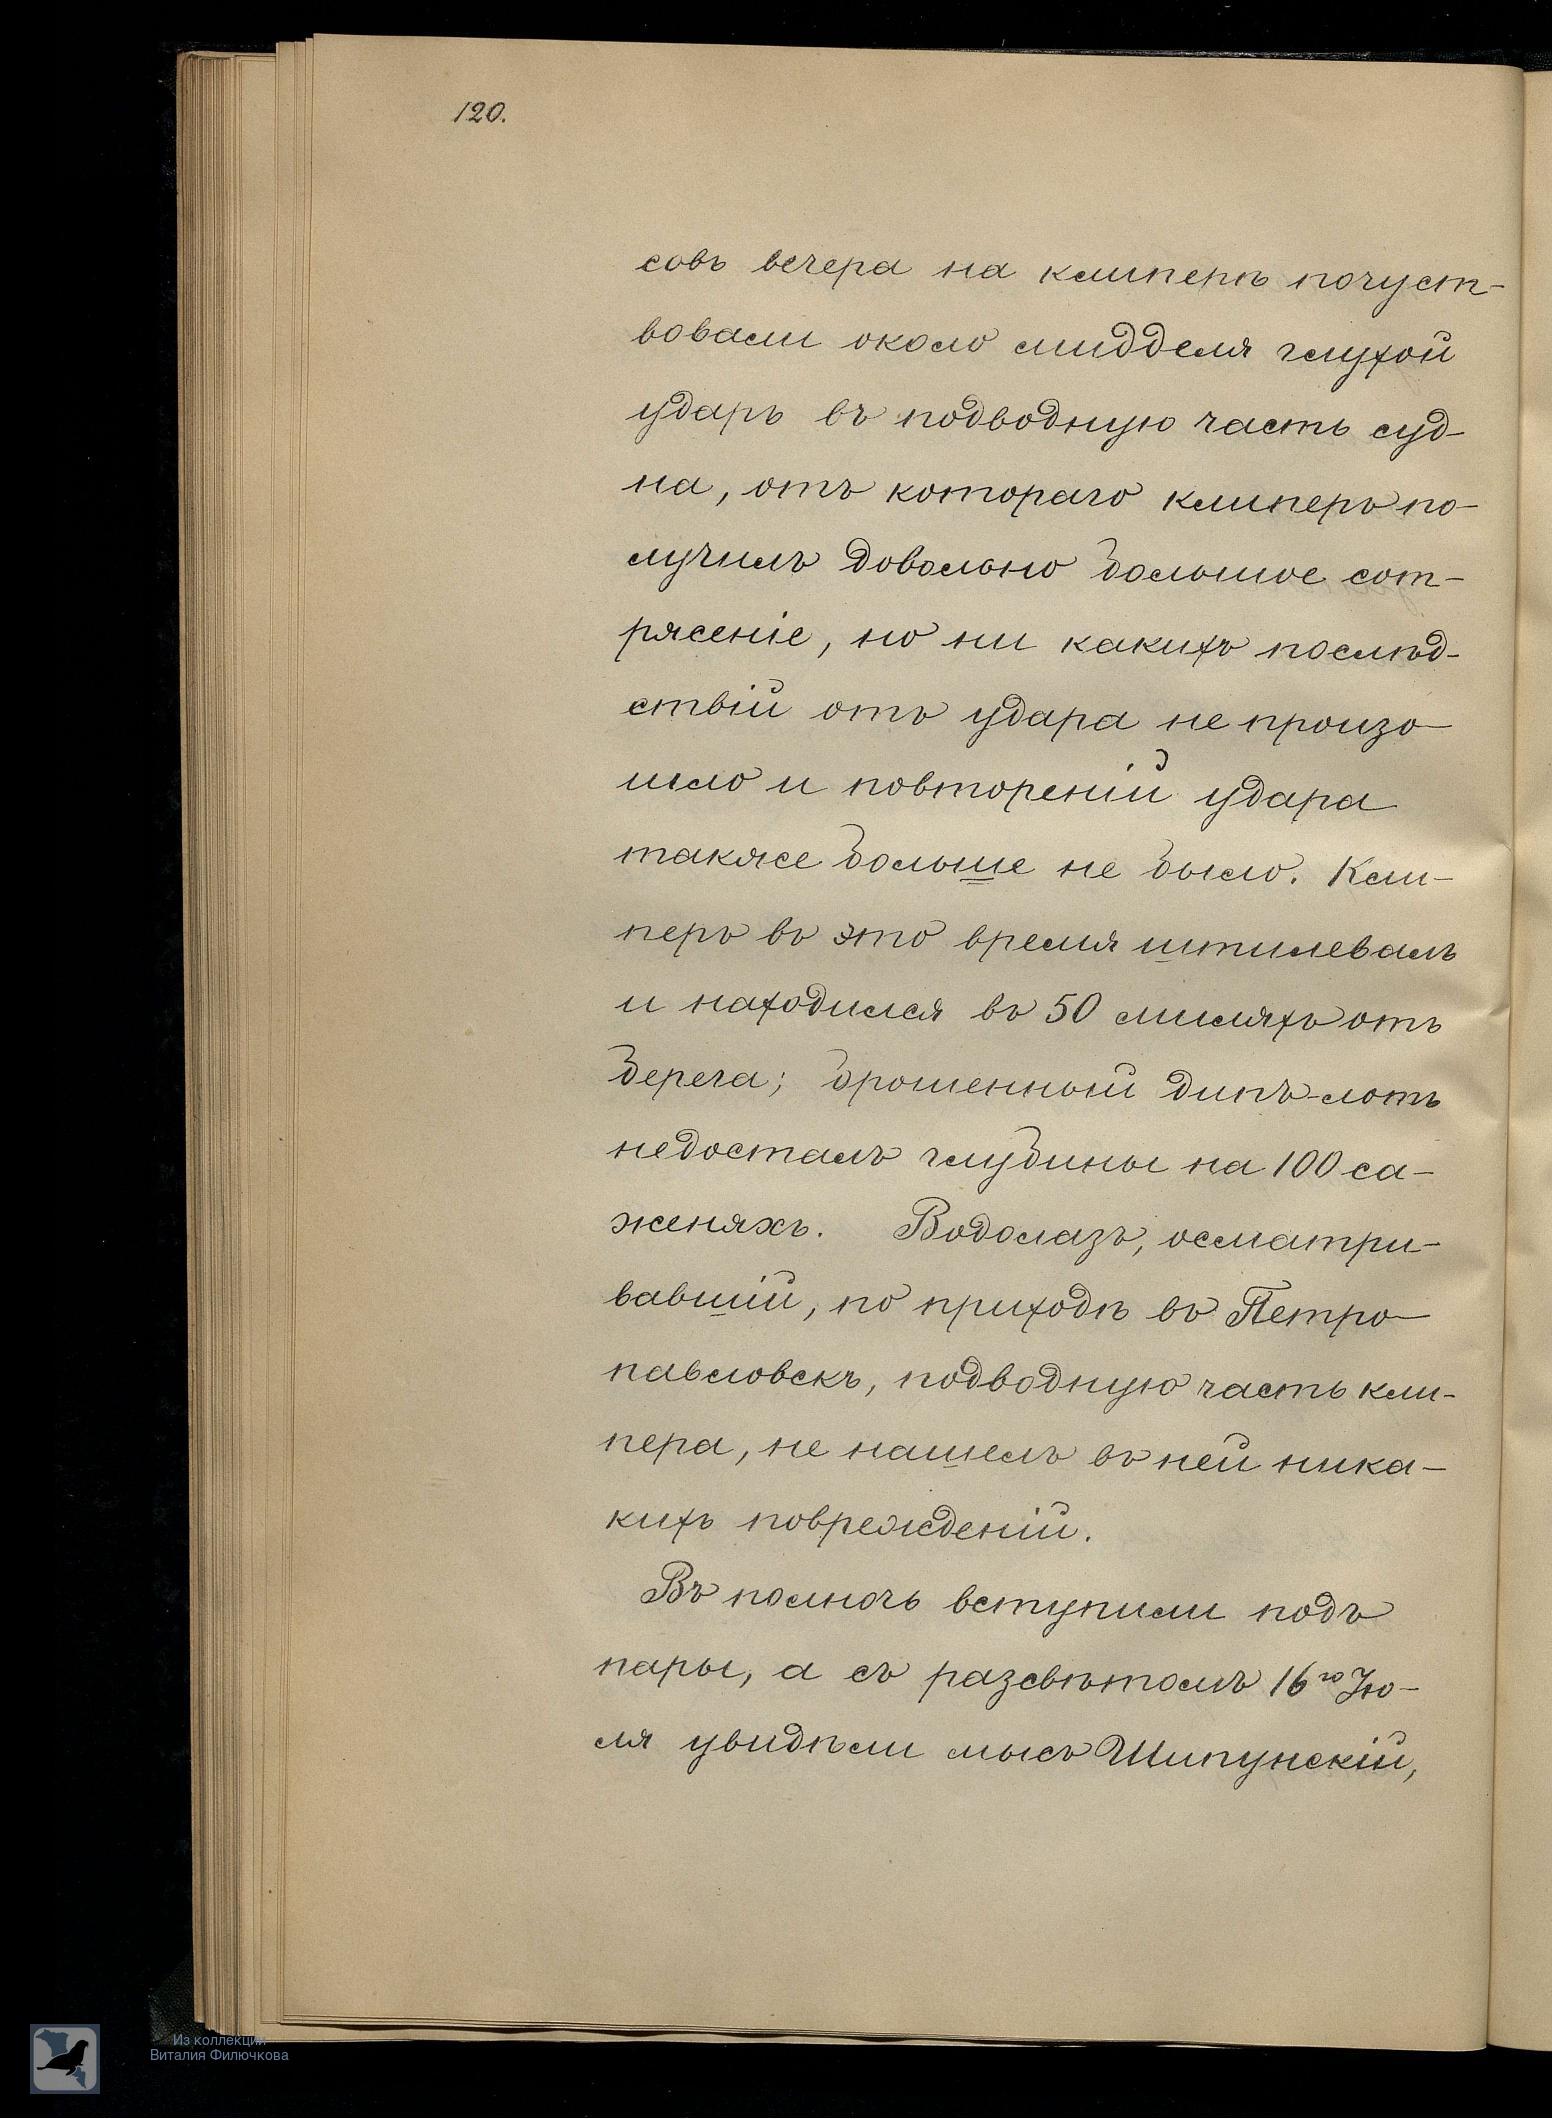 120.
совъ вечера на клиперѣ почуст-
вовали около мидделя глухой
ударъ въ подводную часть суд-
на, отъ котораго клиперъ по-
лучилъ довольно большое сот-
рясеніе, но ни какихъ послѣд-
ствій отъ удара не произо-
шло и повтореній удара
также больше не было. Кли-
перъ въ это время штилевалъ
и находился въ 50 миляхъ отъ
берега; брошенный дипъ-лотъ
недосталъ глубины на 100 са-
женяхъ. Водолазъ, осматри-
вавшій, по приходѣ въ Петро-
павловскъ, подводную часть кли-
пера, не нашелъ въ ней ника-
кихъ поврежденій.
Въ полночь вступили подъ
пары, а съ разсвѣтомъ 16го Ію-
ля увидѣли мысъ Шипунскій,
Из коллекции
Виталия Филючкова